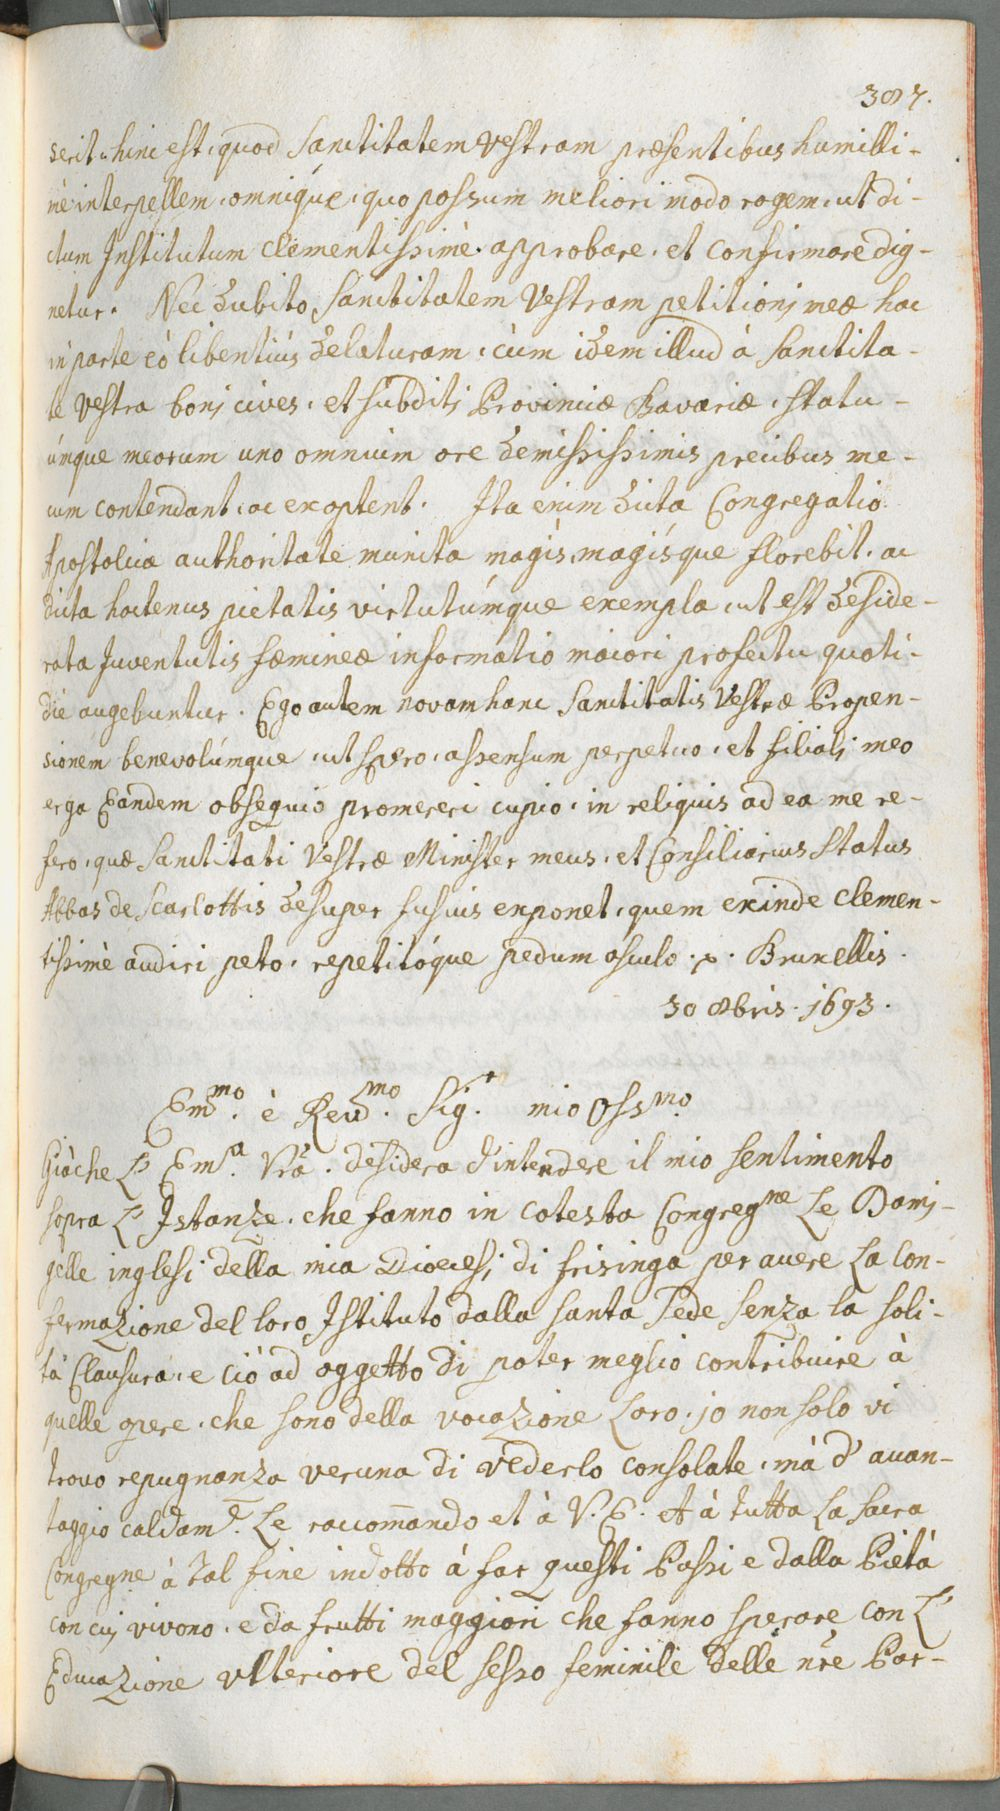 387.
serit, hinc est, quod Sanctitatem Vestram præsentibus humilli-
mè interpellem, omnique, quo possum meliori modo rogem, ut di-
ctum Institutum clementissimè approbare, et confirmare dig-
netur. Nec dubito, Sanctitatem Vestram petitioni meæ hac
in parte eò libentiùs delaturam, cùm idem illud à Sanctita-
te Vestra boni cives, et subditi Provinciæ Bavariæ, Statu-
úmque meorum uno omnium ore demississimis precibus me-
cum contendant, ac exoptent. Ita enim dicta Congregatio
Apostolica authoritate munita magis, magísque florebit, ac
dicta hactenus pietatis virtutúmque exempla, ut est deside-
rata Juventutis fæmineæ informatio maiori profectu quoti-
die augebuntur. Ego autem novam hanc Sanctitatis Vestræ Propen-
sionem benevolúmque, ut spero, assensum perpetuo, et filiali meo
erga Eandem obsequio promereri cupio, in reliquis ad ea me re-
fero, quæ Sanctitati Vestræ Minister meus, et Consiliarius Status
Abbas de Scarlottis desuper fusius exponet, quem exinde clemen-
tissimè audiri peto, repetitóque pedum osculo. p. Bruxellis.
30 8bris. 1693.
Emmo. è Revdmo. Sigr. mio Ossmo.
Giàche L' Ema. Vra. desidera d'intendere il mio sentimento
sopra L' Istanze, che fanno in cotesta Congregne Le Dami-
gelle inglesi della mia Diocesi di frisinga per avere La Con-
fermazione del loro Istituto dalla Santa Sede senza la soli-
ta Clausura, e ciò ad oggetto di poter meglio contribuire à
quelle opere, che sono della vocazione Loro, io non solo vi
trovo repugnanza veruna di vederlo consolate, mà d' avan-
taggio caldame. Le raccomando et à V. E. et à tutta La Sacra
Congregne à tal fine indotto à far questi Passi e dalla Pietà
con cui vivono, e da frutti maggiori che fanno sperare con L'
Educazione ulteriore del sesso feminile delle nre Par-